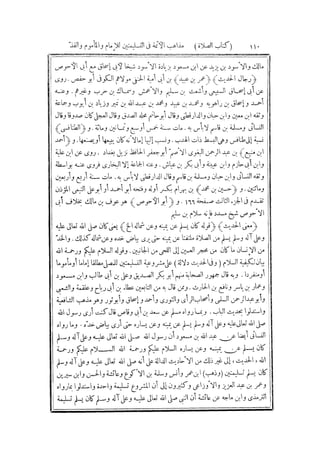 ١١٠ (كتاب الصلاة) مذاهب الأئمة فى التسليمتين للإمام والمأموم والفذّ
مالك والأسود بن يزيد عن ابن مسعود بزيادة الأسود شيخا لأبى إسحاق مع أبى الأحوص
(رجال الحديث) (عمر بن عبيد) بن أبى أمية الحنفى مولاهم الكوفى أبو حفص. روى
عن أبى إسحاق السبيعى وأشعث بن سليم والأعمش وسماك بن حرب وغيرهم. وعنه
أحمد وإسحاق بن راهويه ومحمد بن عبيد ومحمد بن عبد الله بن نمير وزياد بن أيوب وجماعة
وثقه ابن معين وابن حبان والدارقطنى وقال أبو حاتم محله الصدق وقال العجلى كان صدوقا وقال
النسائى ومسلمة بن قاسم لا بأس به. مات سنة خمس أو سبع وثمانين ومائة. و(الطنافسى)
نسبة إلى طنافس وهى البسط ذات الخمل. ونسب إليها إما لأنه كان يبيعها أو يصنعها. و(أحمد
ابن منيع) بن عبد الرحمن البغوى الأصم أبو جعفر الحافظ نزيل بغداد. روى عن ابن علية
وابن أبى حازم وابن عيينة وأبى بكر بن عياش. وعنه الجماعة إلا البخارى فروى عنه بواسطة
وثقه النسائى وابن حبان ومسلمة بن قاسم وقال الدارقطنى لا بأس به. مات سنة أربع وأربعين
ومائتين. و(حسين بن محمد) بن بهرام بكسر أوله وفتحه أبو أحمد أو أبو على التميمى المؤذن
تقدم فى الجزء الثالث صفحة ١٦٦. و(أبو الأحوص) هو عوف بن مالك بخلاف أبى
الأحوص شيخ مسدد فإنه سلام بن سليم
(معنى الحديث) (قوله كان يسلم عن يمينه وعن شماله الخ) يعنى كان صلى الله تعالى عليه
وعلى آله وسلم يسلم من الصلاة ملتفتا عن يمينه وعن شماله حتى يرى بياض خده وعن شماله كذلك. والخد
من الإنسان ما كان من محجر العين إلى اللحى من الجانبين. وقوله السلام عليكم ورحمة الله
بيان لكيفية السلام (وفى الحديث) دلالة على مشروعية التسليمتين للمصلى مطلقا إماما أو مأموما
أو منفردا. وبه قال جمهور الصحابة منهم أبو بكر الصديق وعلى بن أبى طالب وابن مسعود
وعمار بن ياسر ونافع بن الحارث. ومن قال به من التابعين عطاء بن أبى رباح وعلقمة والشعبى
وأبو عبد الرحمن السلمى وأصحاب الرأى والثورى وأحمد وإسحاق وأبو ثور وهو مذهب الشافعية
واستدلوا بحديث الباب. وبما رواه مسلم عن سعد بن أبى وقاص قال كنت أرى رسول الله
صلى الله تعالى عليه وعلى آله وسلم يسلم عن يمينه وعن يساره حتى أرى بياض خده. وما رواه
النسائى أيضا عن عبد الله بن مسعود أن رسول الله صلى الله تعالى عليه وعلى آله وسلم
كان يسلم عن يمينه وعن يساره السلام عليكم ورحمة الله السلام عليكم ورحمة
الله، الحديث، إلى غير ذلك من الأحاديث الدالة على أنه صلى الله تعالى عليه وعلى آله وسلم
كان يسلم تسليمتين (وذهب) ابن عمر وأنس وسلمة بن الأكوع وعائشة والحسن وابن سيرين
وعمر بن عبد العزيز والأوزاعى وكثيرون إلى أن المشروع تسليمة واحدة واستدلوا بما رواه
الترمذى وابن ماجه عن عائشة أن النبى صلى الله تعالى عليه وعلى آله وسلم كان يسلم تسليمة